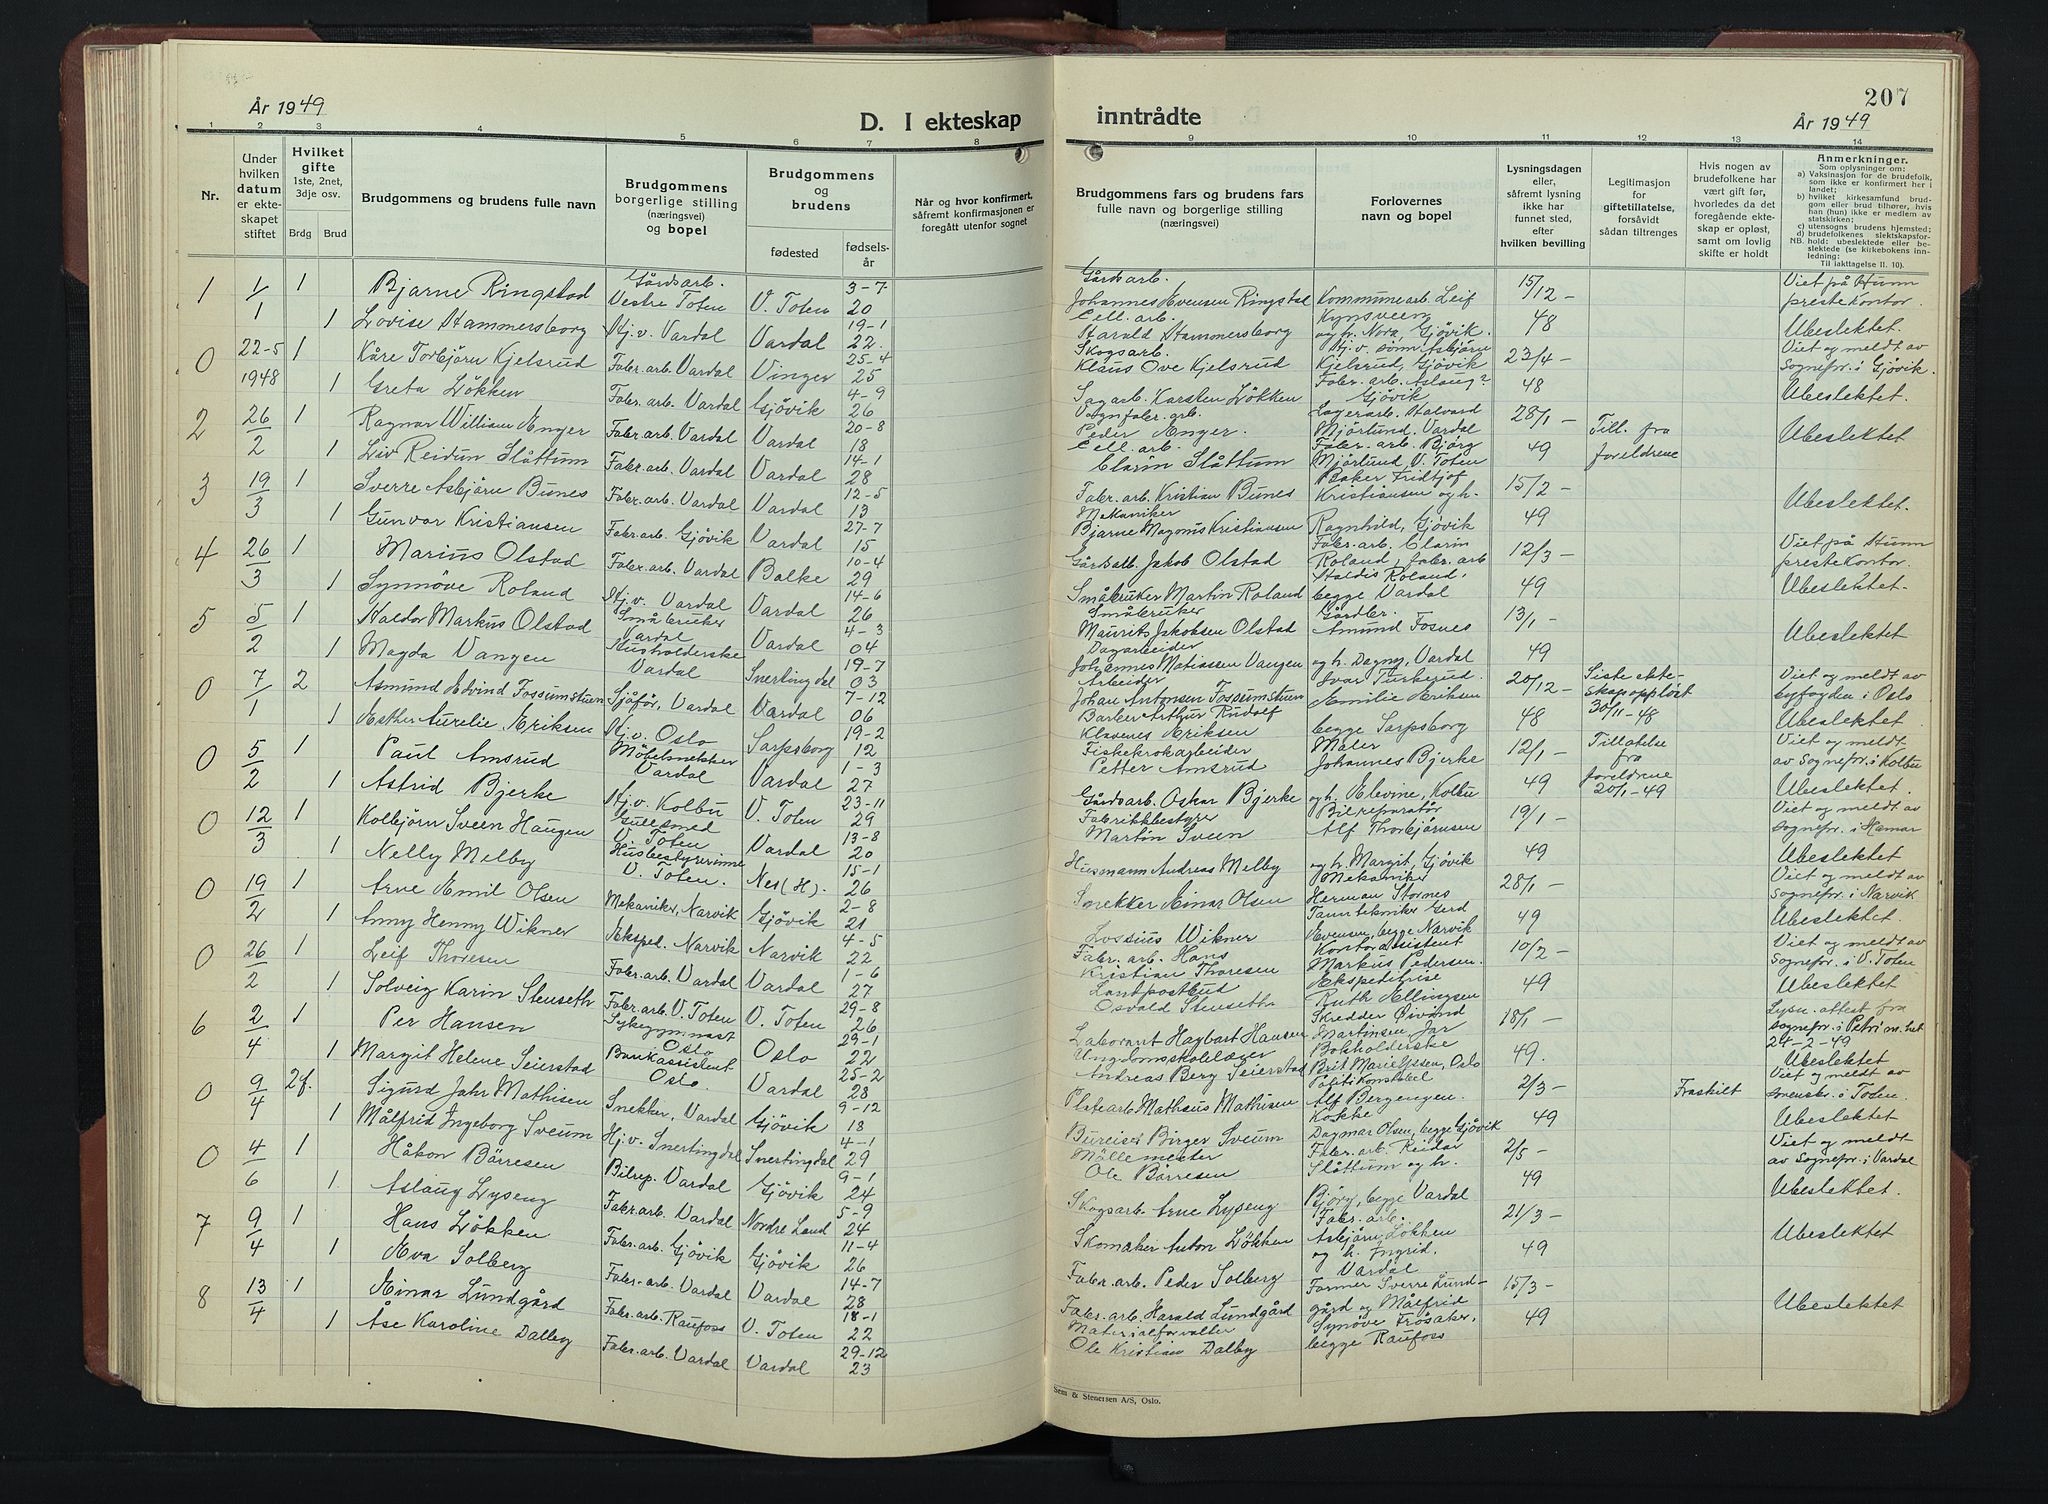 År 1949
D. I ekteskap
1 2 3 4 5 6 7 8
Nr.
Under hvilken datum er ekte-skapet stiftet
Hvilket gifte 1ste, 2net, 3dje osv.
Brdg Brud
Brudgommens og brudens fulle navn
Brudgommens borgerlige stilling (næringsvei) og bopel
Brudgommens og brudens
fødested fødsels-år
Når og hvor konfirmert, såfremt konfirmasjonen er foregått utenfor sognet
1 1/1 1 Bjarne Ringstad Gårdsarb. Vestre Toten V. Toten 3-7 20
1 Lovise Hammersborg Hj.v. Vardal Vardal 19-1 22
0 22-5 1948 1 Kåre Torbjørn Kjelsrud Fabr.arb. Vardal Vinger 25-4 25
1 Greta Løkken Fabr.arb. Vardal Gjøvik 4-9 26
2 26/2 1 Ragnar William Enger Fabr.arb. Vardal Vardal 20-8 18
1 Liv Reidun Slåttum Fabr.arb. Vardal Vardal 14-1 28
3 19/3 1 Sverre Asbjørn Bunes Fabr.arb. Vardal Vardal 12-5 13
1 Gunvor Kristiansen Fabr.arb. Gjøvik Vardal 27-7 15
4 26/3 1 Marius Olstad Fabr.arb. Vardal Balke 10-4 29
1 Synnøve Roland Hj.v. Vardal Vardal 14-6 26
5 5/2 1 Haldor Markus Olstad Småbruker Vardal Vardal 4-3 04
1 Magda Vangen Husholderske Vardal Snertingdal 19-7 03
0 7/1 2 Asmund Edvind Fossumstuen Sjåfør, Vardal Vardal 7-12 06
1 Esther Aurelie Eriksen Hj.v. Oslo Sarpsborg 19-2 12
0 5/2 1 Paul Amsrud Møbelsnekker Vardal Vardal 1-3 27
1 Astrid Bjerke Hj.v. Kolbu V. Toten 23-11 29
0 12/3 1 Kolbjørn Sveen Haugen Gullsmed V. Toten Vardal 13-8 20
1 Nelly Melby Husbestyrerinne V. Toten. Nes (H). 15-1 26
0 19/2 1 Arne Emil Olsen Mekaniker, Narvik Gjøvik 2-8 21
1 Anny Henny Wikner Ekspel. Narvik Narvik 4-5 22
0 26/2 1 Leif Thoresen Fabr.arb. Vardal Vardal 1-6 27
1 Solveig Karin Stenseth Fabr.arb. V. Toten V. Toten 29-8 26
6 2/4 1 Per Hansen Sykegymnast Oslo Oslo 29-1 22
1 Margit Helene Seierstad Bankassistent Oslo. Vardal 25-2 28
0 9/4 2f. Sigurd Jahr Mathisen Snekker, Vardal Gjøvik 9-12 18
1 Målfrid Ingeborg Sveum Hj.v. Snertingdal Snertingdal 4-1 29
0 4/6 1 Håkon Børresen Bilrep. Vardal Gjøvik 9-1 24
1 Aslaug Lyseng Fabr.arb. Vardal Nordre Land 5-9 24
7 9/4 1 Hans Løkken Fabr.arb. Gjøvik Gjøvik 11-4 26
1 Eva Solberg Fabr.arb. Vardal Vardal 14-7 28
8 13/4 1 Einar Lundgård Fabr.arb. Raufoss V. Toten 18-1 22
1 Åse Karoline Dalby Fabr.arb. Vardal Vardal 29-12 23
207
inntrådte
År 1949
9 10 11 12 13 14
Brudgommens fars og brudens fars fulle navn og borgerlige stilling (næringsvei)
Forlovernes navn og bopel
Lysningsdagen eller, såfremt lysning ikke har funnet sted, efter hvilken bevilling
Legitimasjon for giftetillatelse, forsåvidt sådan tiltrenges
Hvis nogen av brudefolkene har vært gift før, hvorledes da det foregående ekte-skap er opløst, samt om lovlig skifte er holdt
Anmerkninger.
Som oplysningen om:
a) Vaksinasjon for de brudefolk, som ikke er konfirmert her i landet;
b) hvilket kirkesamfund brud-gom eller brud tilhører, hvis han (hun) ikke er medlem av statskirken;
c) utensogns brudens hjemsted;
d) brudefolkenes slektskapsfor-hold: ubeslektede eller be-slektede (se kirkebokens inn-ledning:
NB. Til iakttagelse II. 10).
Gårdsarb. Johannes Evensen Ringstad Kommunearb. Leif Kynsveen 15/12 - 48 Viet på Hunn prestekontor.
Cell.arb. Harald Hammersborg og h. Nora, Gjøvik. Ubeslektet.
Skogsarb. Klaus Ove Kjelsrud Hj.v. sønn Asbjørn Kjelsrud, Gjøvik 23/4 - 48 Viet og meldt av sognepr. i Gjøvik.
Sagarb. Karsten Løkken Fabr.arb. Aslaug ? Gjøvik Ubeslektet.
Vognfabr.arb. Peder Enger. Lagerarb. Halvard Mjørlund, Vardal 28/1 - 49 Till. fra foreldrene Ubeslektet
Cell.arb. Clarin Slåttum Fabr.arb. Bjørg Mjørlund, V. Toten
Fabr.arb. Kristian Bunes Baker Fridtjof Kristiansen og h. 15/2 - 49 Ubeslektet.
Mekaniker Bjarne Magnus Kristiansen Ragnhild, Gjøvik
Gårdsarb. Jakob Olstad Fabr.arb. Clarin Roland, fabr.arb 12/3 - 49 Viet på Hunn prestekontor.
Småbruker Martin Roland Haldis Roland, begge Vardal Ubeslektet.
Småbruker Maurits Jakobsen Olstad Gårdbr. Amund Fosnes 13/1 - 49 Ubeslektet
Dagarbeider Johannes Matiassen Vangen og h. Dagny, Vardal
Arbeider Johan Antonsen Fossumstuen Ivar Turkerud. Emilie Eriksen 20/12 - 48 Siste ekte-skap oppløst 30/11-48 Viet og meldt av byfogden i Oslo
Barber Arthur Rudolf Klavenes Eriksen begge Sarpsborg Ubeslektet.
Fiskekrokarbeider Petter Amsrud Maler Johannes Bjerke 12/1 - 49 Tillatelse fra foreldrene 20/1-49 Viet og meldt av sognepr. i Kolbu
Gårdsarb. Oskar Bjerke og h. Elevine, Kolbu Ubeslektet.
Fabrikkbestyrer Martin Sveen Bilreparatør Alf Thorbjørnsen 19/1 - 49 Viet og meldt av sognepr. i Hamar
Husmann Andreas Melby og h. Margit, Gjøvik Ubeslektet
Snekker Einar Olsen Mekaniker Herman Stornes 28/1 - 49 Viet og meldt av sognepr. i Narvik
Lossius Wikner Tanntekniker Gerd Evensen, begge Narvik Ubeslektet.
Fabr.arb. Hans Kristian Thoresen Kontorassistent Markus Pedersen. 10/2 - 49 Viet og meldt av sognepr. i V. Toten
Landpostbud Osvald Stenseth Ekspeditrise Ruth Ellingsen Ubeslektet
Laborant Hagbart Hansen Skredder Øivind Martinsen, Jar 18/1 - 49. Lysn. attest fra sognepr. i Petri m.het 24-2-49
Ungdomsskolelærer Andreas Berg Seierstad Bokholderske Brit Marie Yssen, Oslo Ubeslektet
Platearb. Mathæus Mathisen Politikonstabel Alf Bergengen. 2/3 - 49 Fraskilt Viet og meldt av sorenskr. i Toten.
Bureiser Birger Sveum Kokke Dagmar Olsen, begge Gjøvik Ubeslektet
Møllemester Ole Børresen Fabr.arb. Reidar Slåttum og h. 2/5 - 49 Viet og meldt av sognepr. i Vardal
Skogsarb. Arne Lyseng Bjørg, begge Vardal Ubeslektet.
Skomaker Anton Løkken Fabr.arb. Asbjørn Løkken og h. Ingrid. 21/3 - 49 Ubeslektet
Fabr.arb. Peder Solberg Vardal
Fabr.arb. Harald Lundgård Former Sverre Lund-gård og Målfrid 15/3 - 49 Ubeslektet
Materialforvalter Ole Kristian Dalby Synøve Frøsaker, begge Raufoss
Sem & Stenersen A/S, Oslo.